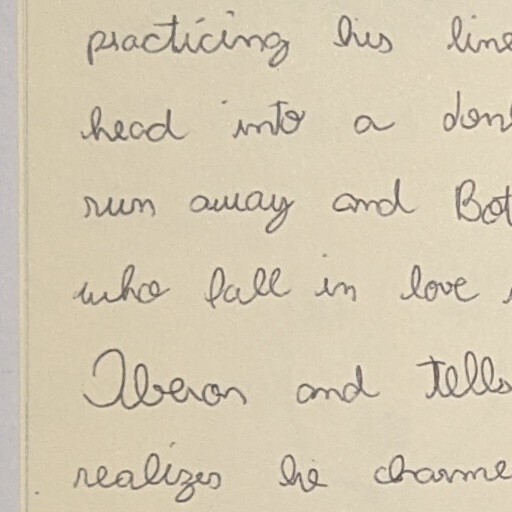 practicing his line
head into a don
run away and Bot
who fall in love
Oberon and tells
realizes he charme